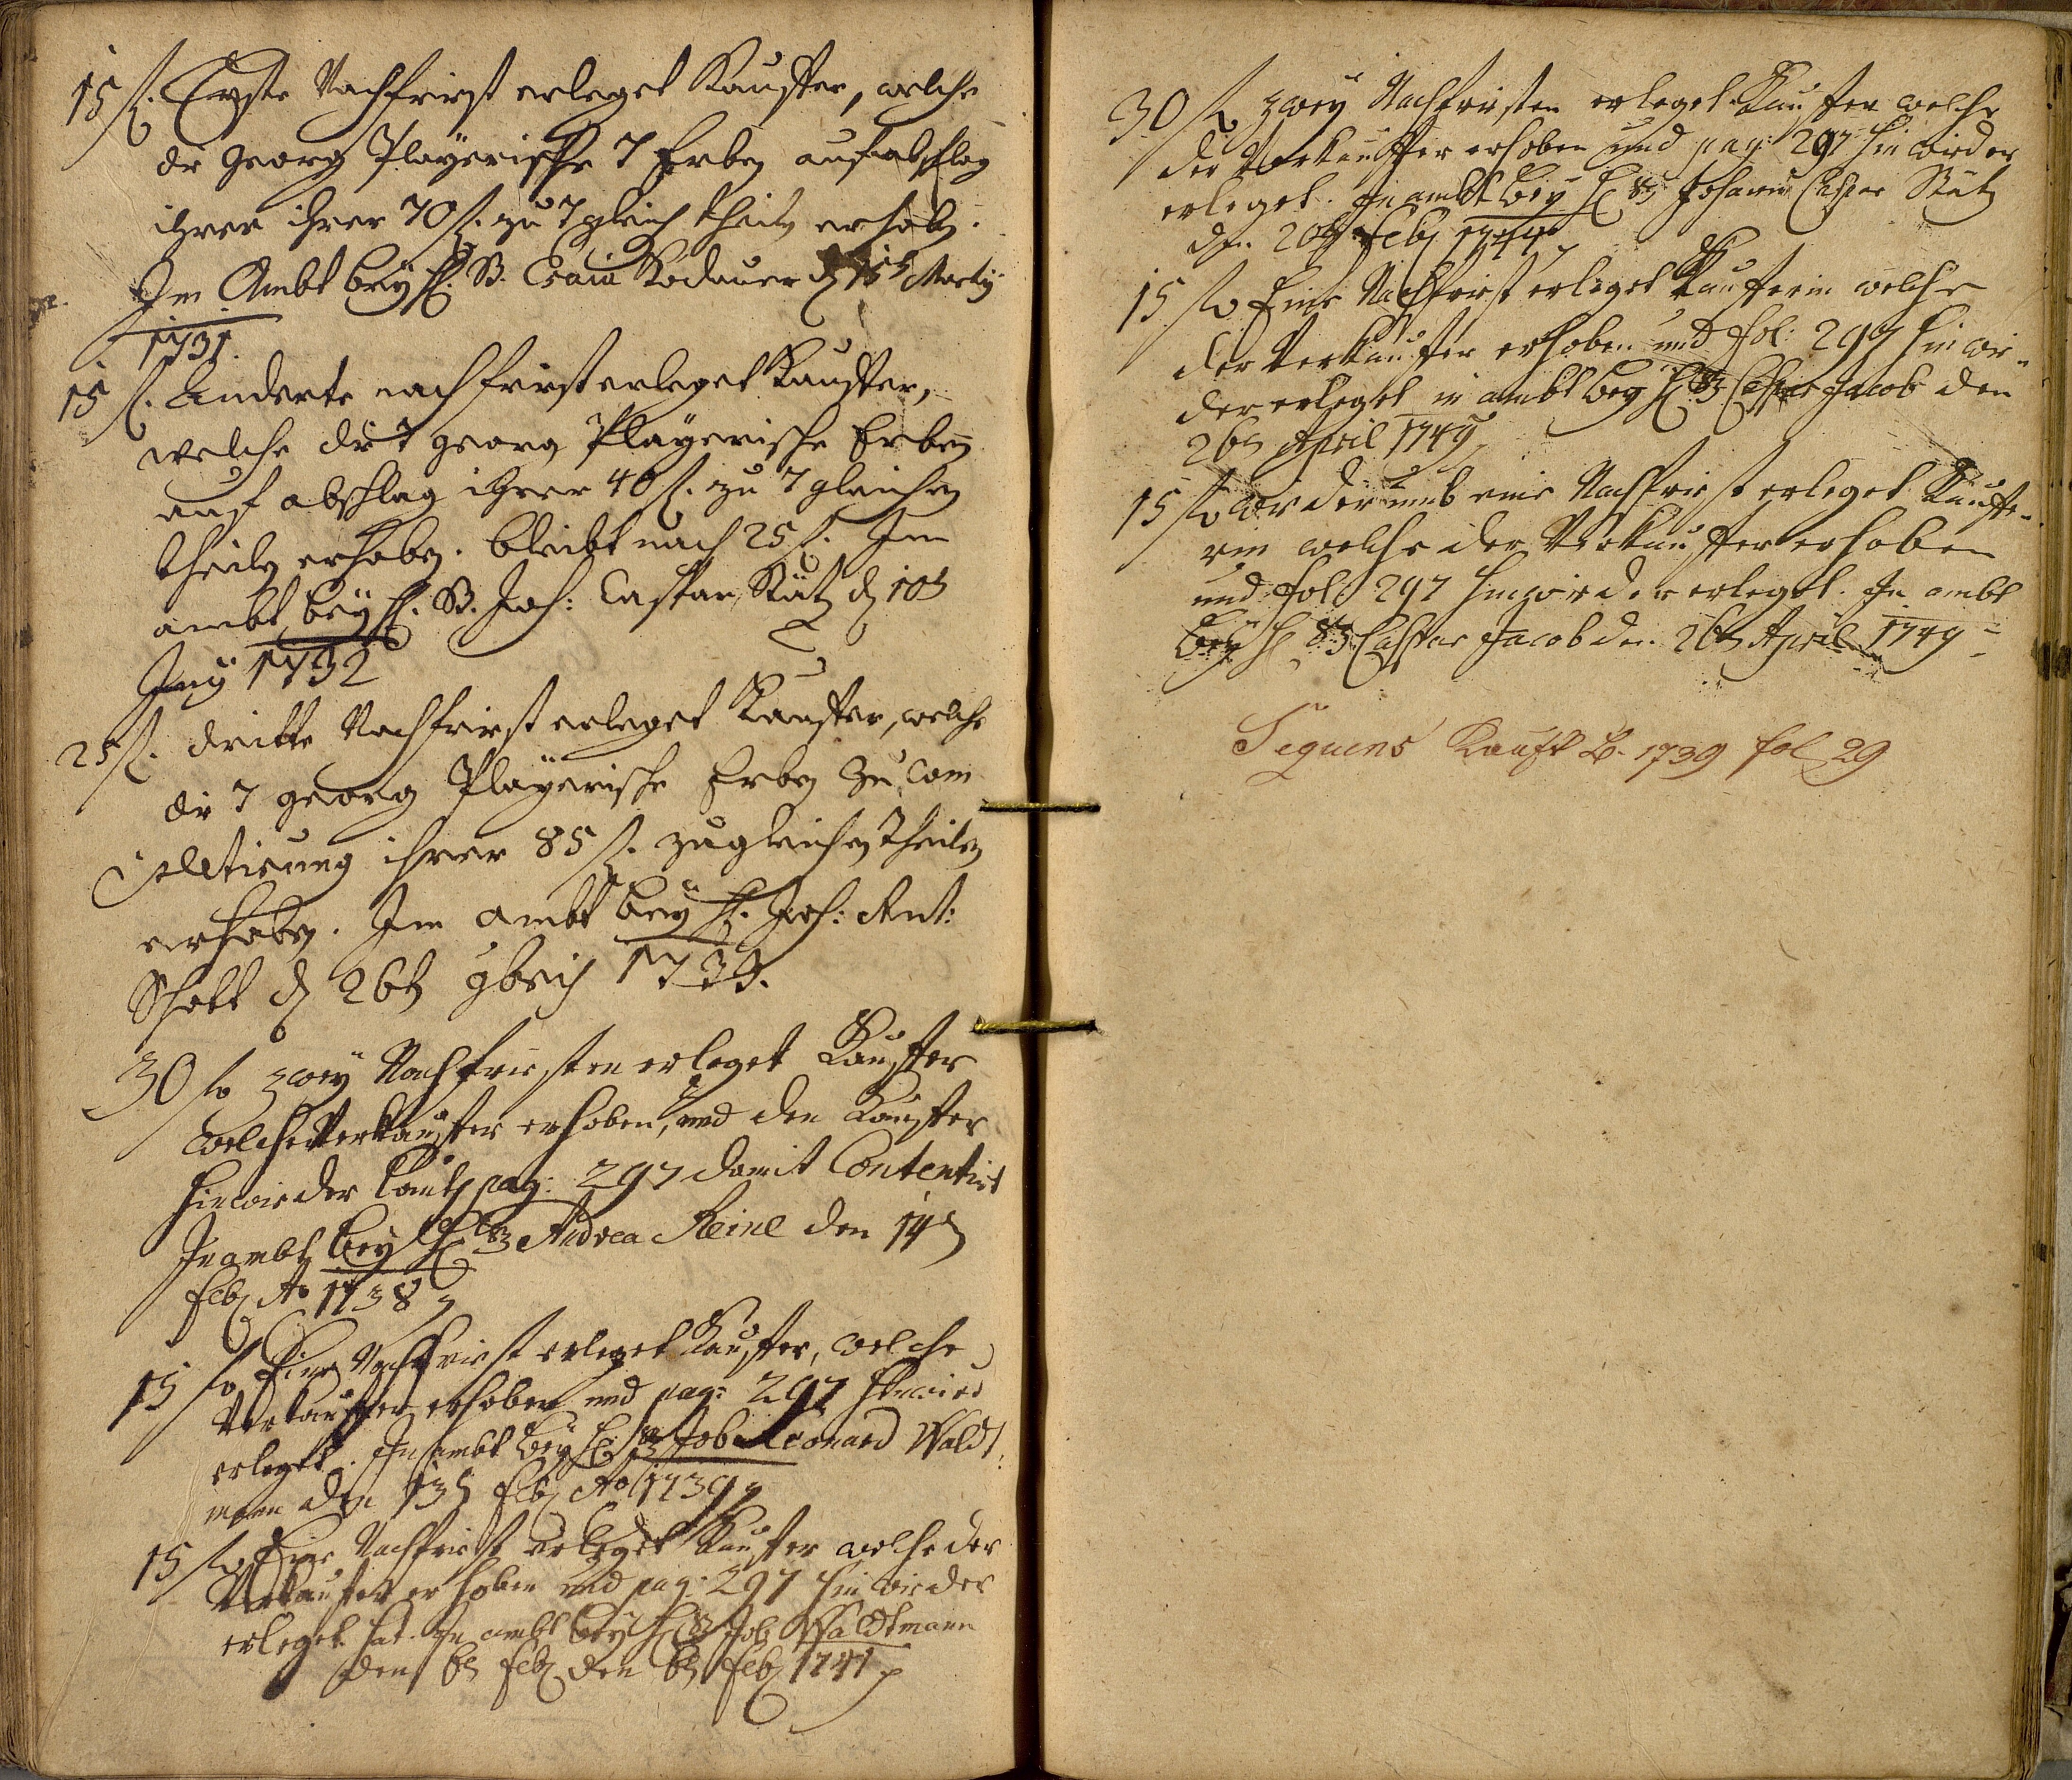 15 fl. Erste Nachfrist erleget Kauffer, welche
die Georg Playerische 7 Erben auf abschlag
ihrer ihrer 70 fl. zu 7 gleich theiln erhoben.
Im Ambt bey H. B. Esaia Kodauer d 15t Martij
1731.
15 fl. Anderte nachfrist erleget Kauffer,
welche die 7 Georg Playerische Erben
auf abschlag ihrer 40 fl. zu 7 gleichen
theiln erhoben. bleibt noch 25 fl. Im
ambt bey H. B. Joh: Caspar Stütz d 10t
Juny 1732
25 fl. dritte Nachfrist erleget Kauffer, welche
die 7 Georg Playerische Erben zu Com
ihrer 85 fl. zu gleichen theilen
erhoben. Im ambt bey H. Joh: Ant:
Schott d 26t 9bris
30 fl zwey Nachfristen erleget Kauffer
welche Verkauffer erhoben, und den Kauffer
hinwieder lauth pag: 297 damit Contentirt
In ambt bey H B Andrea Keinl den 14t
Feb Ao 1738
15 fl Eine Nachfrist erleget Kauffer, welche
Verkauffer erhoben und pag: 297 hinwied
erleget. In ambt bey H B Job Leonard Waldt
mann den 13t Feb Ao 1739
15 fl Eine Nachfrist erleget Kauffer welche der
Verkauffer erhoben und pag: 297 hinwieder
erleget hat. In ambt bey H B Job Waldtmann
den 6t Feb den 6t Feb 1741
30 fl zwey Nachfristen erleget Kauffer welche
der Verkauffer erhoben und pag: 297 hinwieder
erleget. In ambt bey H B Johann Caspar Stütz
den 20t Feb 1744
15 fl Eine Nachfrist erleget Kaufferin welche
der Verkauffer erhoben und fol: 297 hinwie-
der erleget in ambt bey H B Caspar Jacob den
26t April 1749
15 fl wiederumb eine Nachfrist erleget Kauffe-
rin welche der Verkauffer erhoben
und fol: 297 hinwieder erleget. In ambt
bey H B Caspar Jacob den 26t April 1749
Sequens Kauff B. 1739 fol 29